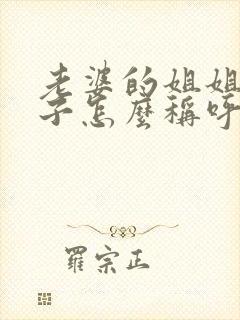 老婆的姐姐
子怎麼稱呼
羅宗正